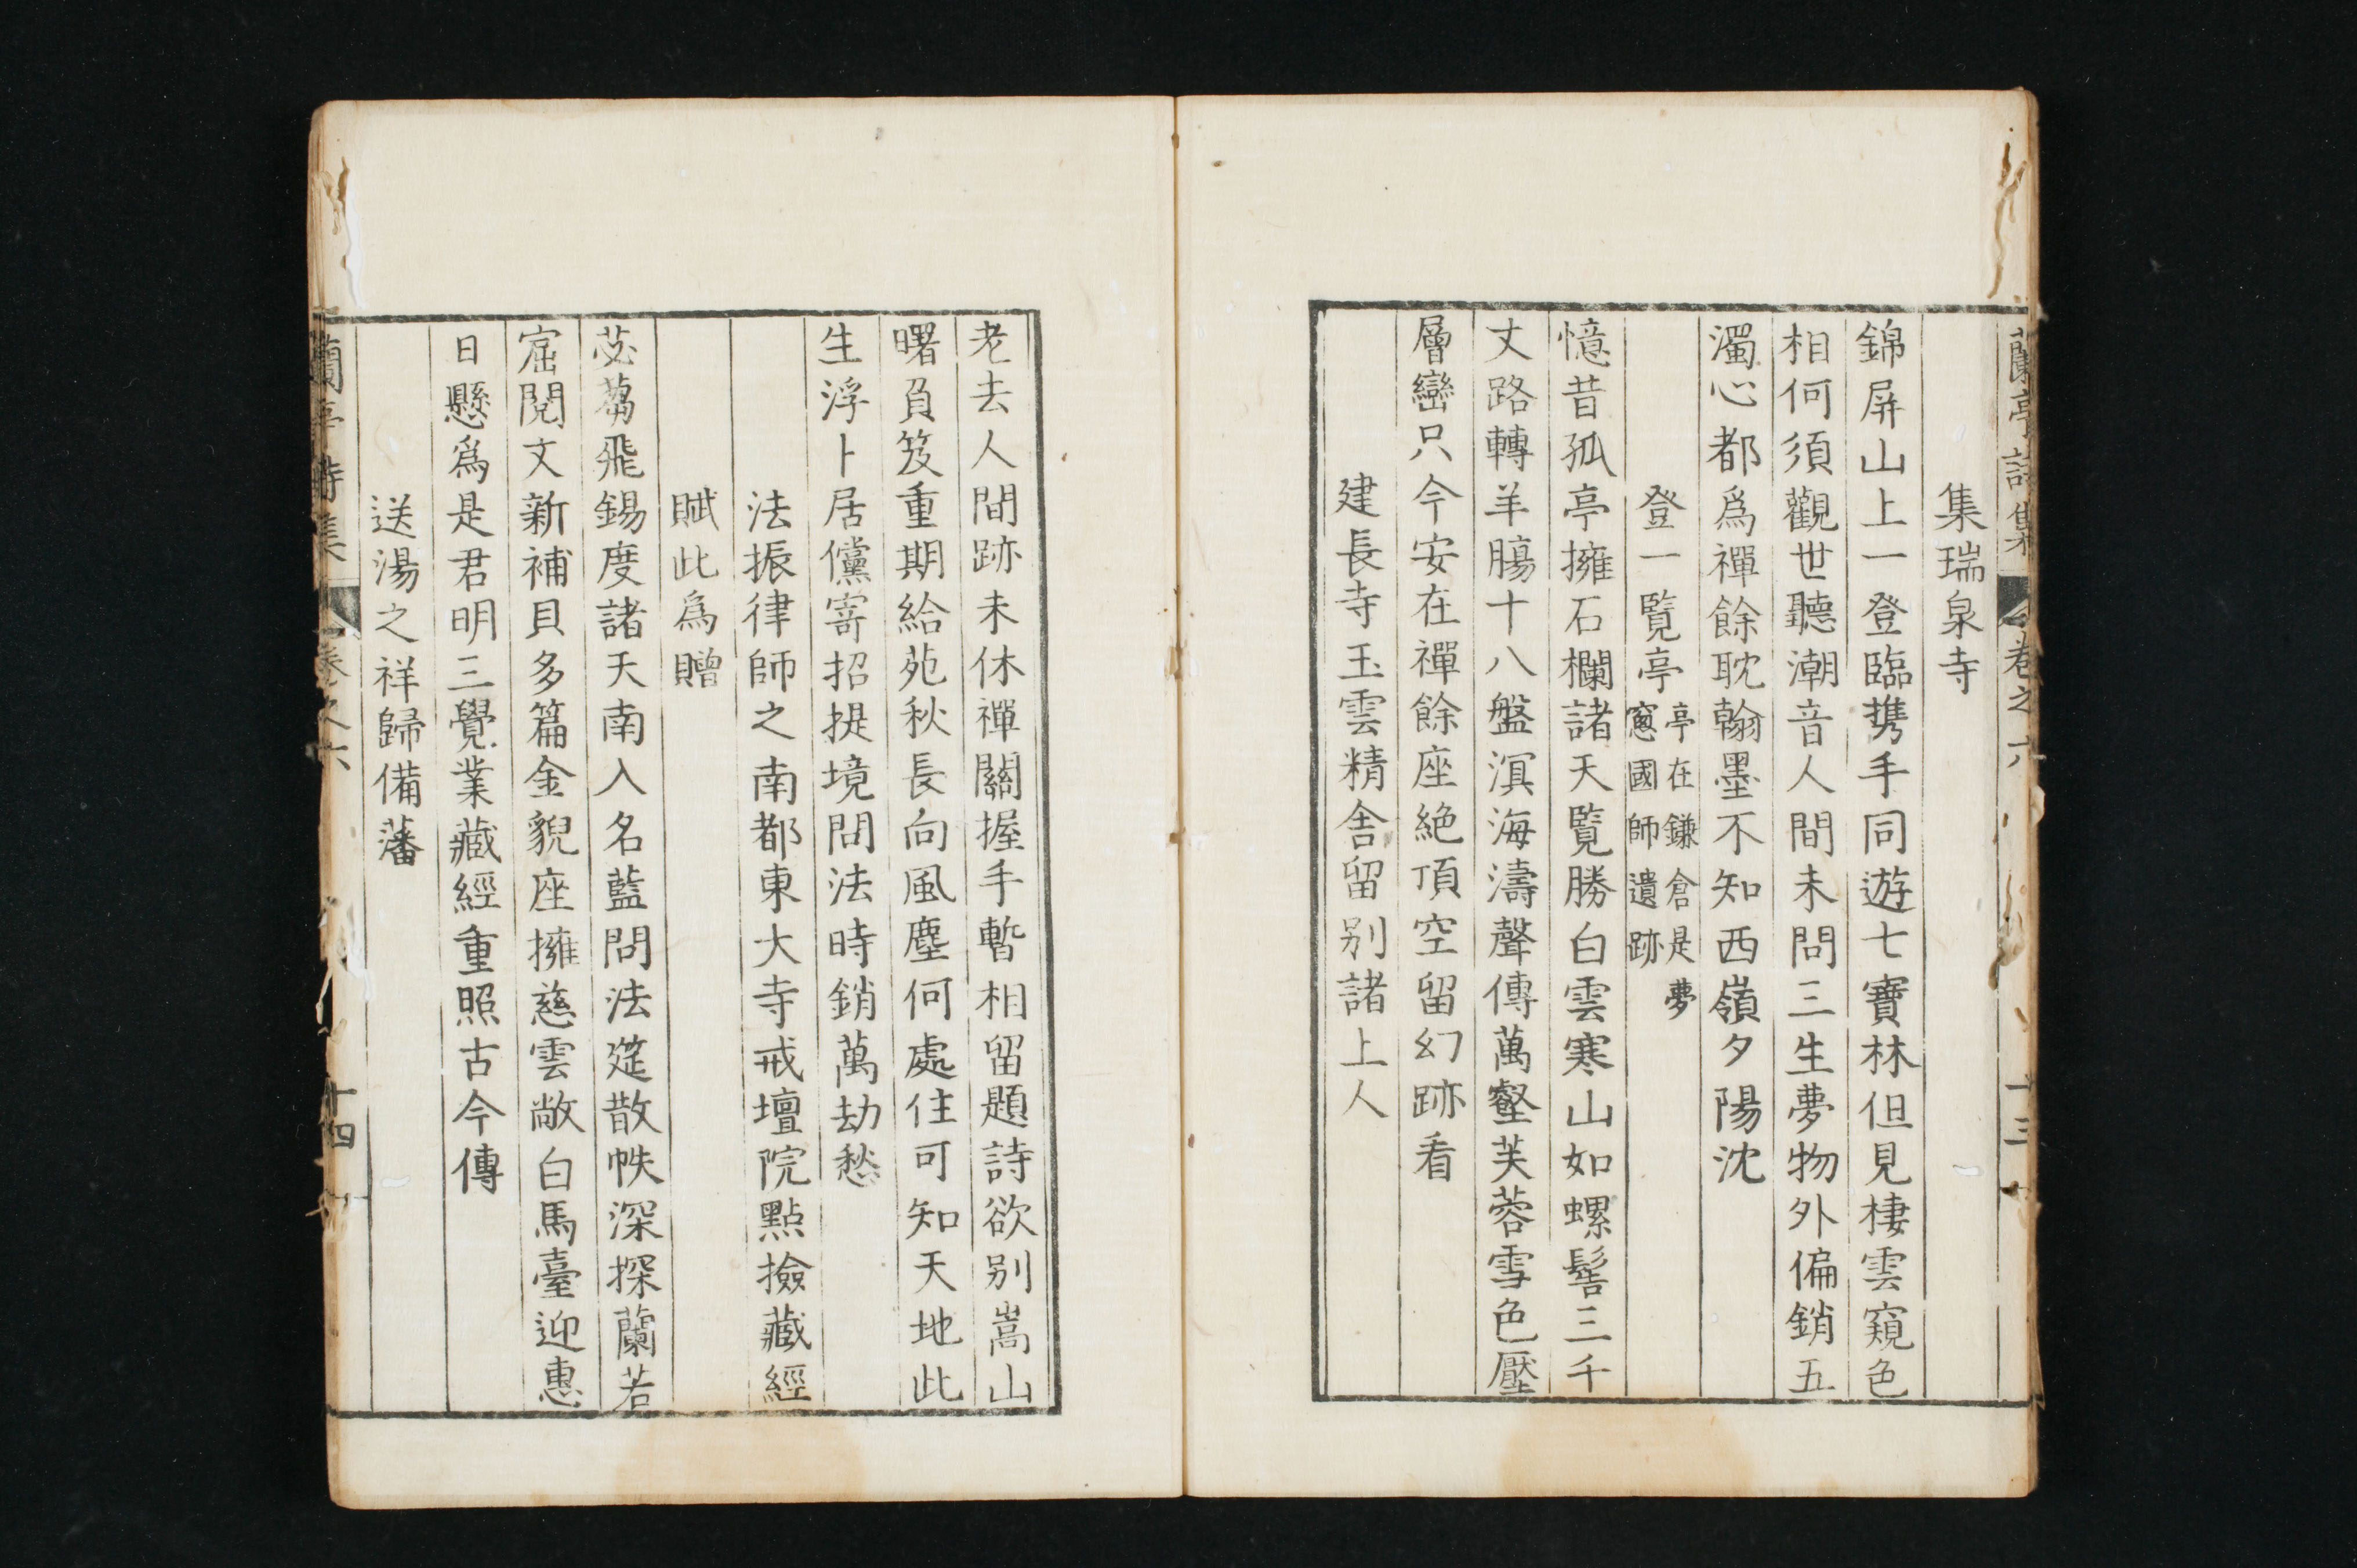 蘭亭詩集 卷之六 十三
集瑞泉寺
錦屏山上一登臨携手同遊七寶林但見棲雲窺色
相何須觀世聽潮音人間未問三生夢物外偏銷五
濁心都爲禪餘耽翰墨不知西嶺夕陽沈
登一覧亭亭在鎌倉是夢
窻國師遺跡
憶昔孤亭擁石欄諸天覧勝白雲寒山如螺髻三千
丈路轉羊腸十八盤溟海濤聲傳萬壑芙蓉雪色壓
層巒只今安在禪餘座絶頂空留幻跡看
建長寺玉雲精舎留别諸上人
老去人間跡未休禪關握手暫相留題詩欲别嵩山
曙負笈重期給苑秋長向風塵何處住可知天地此
生浮卜居儻寄招提境問法時銷萬劫愁
法振律師之南都東大寺戒壇院點撿藏經
賦此爲贈
苾蒭飛錫度諸天南入名藍問法筵散帙深探蘭若
窟閱文新補貝多篇金貎座擁慈雲敞白馬臺迎惠
日懸爲是君明三覺業藏經重照古今傳
送湯之祥歸備藩
蘭亭詩集 卷之六 十四